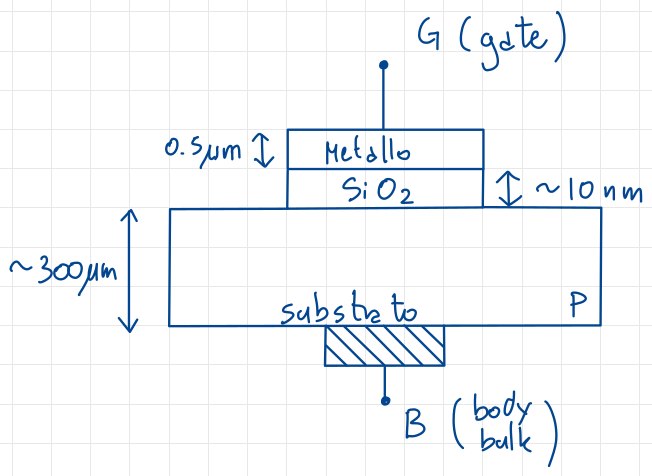 G (gate)
0.5µm
Metallo
SiO₂
~10 nm
~300µm
substrato
P
B (body
bulk)